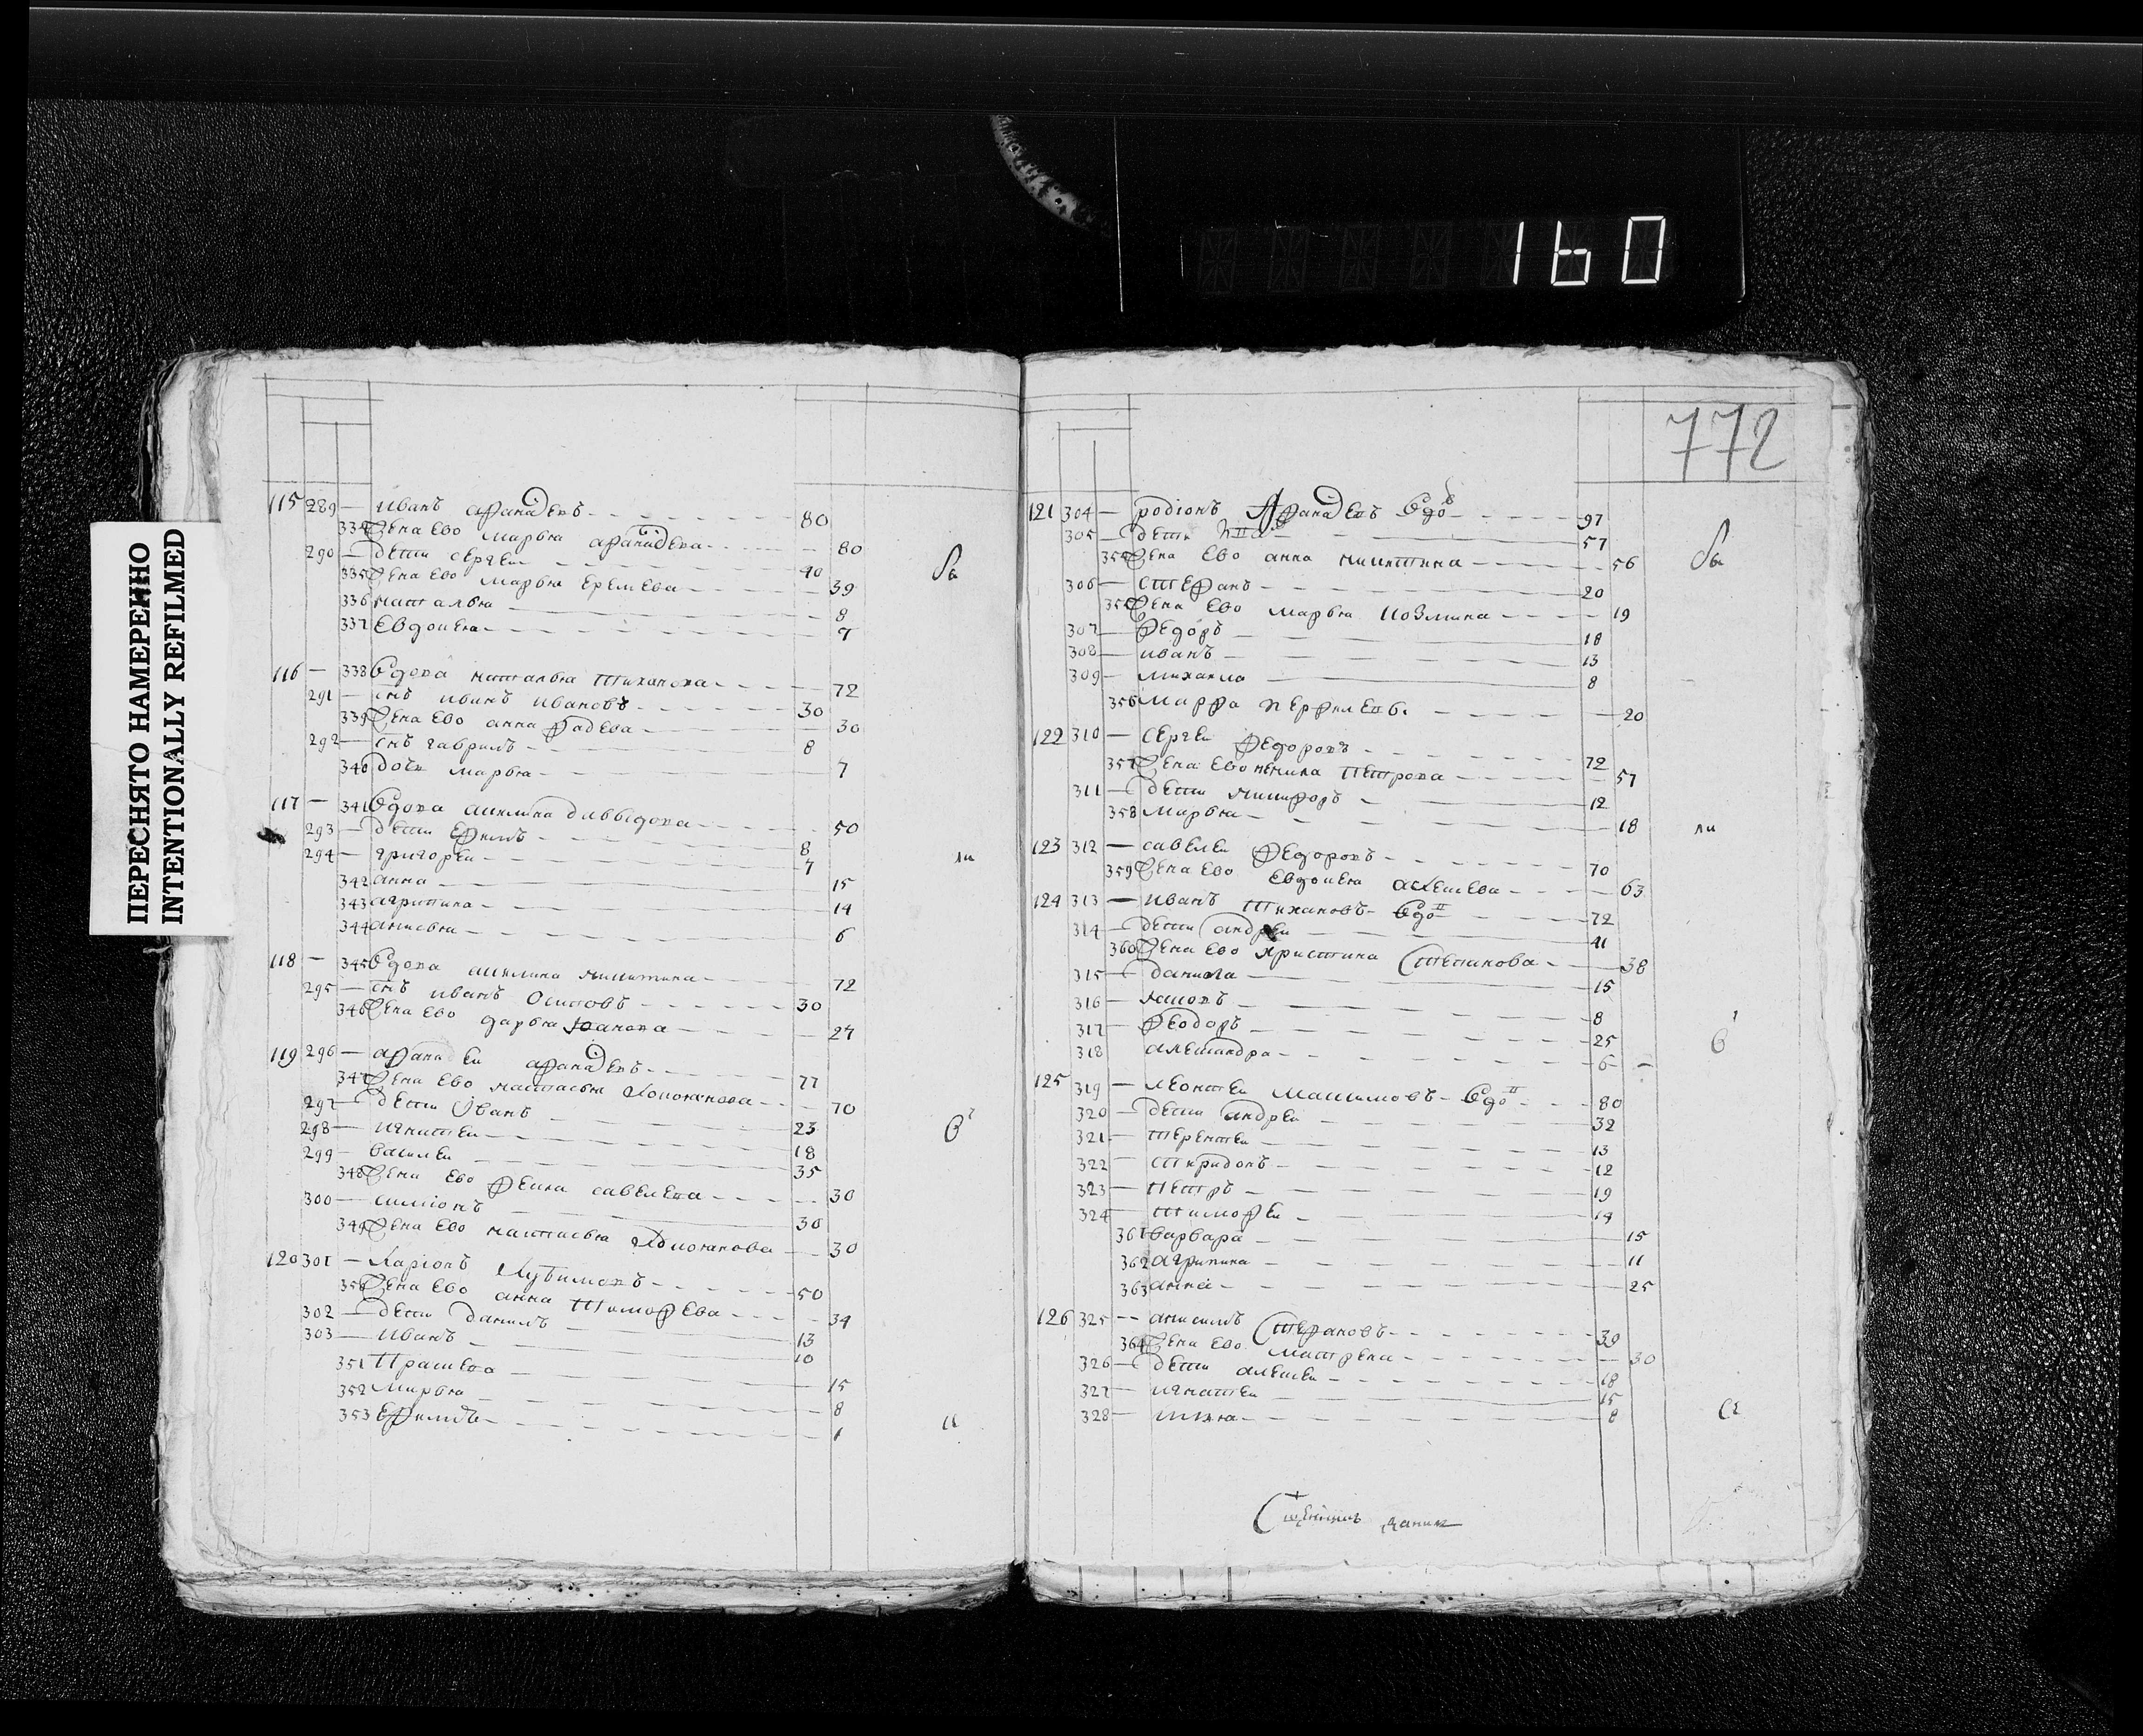 160
ПЕРЕСНЯТО НАМЕРЕННО
INTENTIONALLY REFILMED
115 289 — иванъ афанасевъ 80
334 жена ево марья афанасева 80
290 — дети сергеи 40
335 жена ево марья еремева 39
336 наталья 8
337 Евдокия 7
116 — 338 вдова наталья тиханова 72
291 — снъ иванъ ивановъ 30
339 жена ево анна фадева 30
292 — снъ гаврилъ 8
340 дочь марья 7
117 — 341 вдова акилина давыдова 50
293 — дети ефимъ 8
294 — григореи 7
342 анна 15
343 агрипина 14
344 анисья 6
118 — 345 вдова акилина никитина 72
295 — снъ иванъ Осиповъ 30
346 жена ево дарья 27
119 296 — афанасеи афанасевъ 77
347 жена ево настасья 70
297 — дети Иванъ 23
298 — игнатеи 18
299 — василеи 35
348 жена ево фекла савелева 30
300 — симионъ 30
349 жена ево настасья 30
120 301 — Ларионъ 50
350 жена ево анна тимофева 34
302 — дети данилъ 13
303 — иванъ 10
351 15
352 марья 8
353 1
772
121 304 — родионъ Афанасевъ вдо 97
305 — дети 57
354 жена ево анна никитина 56
306 — стефанъ 20
355 жена ево марья козмина 19
307 — федоръ 18
308 — иванъ 13
309 — михаила 8
356 марфа перфилева 20
122 310 — сергеи федоровъ 72
357 жена ево петрова 57
311 — дети никифоръ 12
358 марья 18
123 312 — савелеи федоровъ 70
359 жена ево евдокия алексеева 63
124 313 — иванъ тихановъ вдо 72
314 — дети андреи 41
360 жена ево христина Степанова 38
315 — данила 15
316 — 8
317 — феодоръ 25
318 александра 6
125 319 — леонтеи максимовъ вдо 80
320 — дети андреи 32
321 — терентеи 13
322 — спиридонъ 12
323 — петръ 19
324 — тимофеи 14
361 варвара 15
362 агрипина 11
363 анна 25
126 325 — анисимъ Стефановъ 39
364 жена ево матрена 30
326 — дети алексеи 18
327 — игнатеи 15
328 — 8